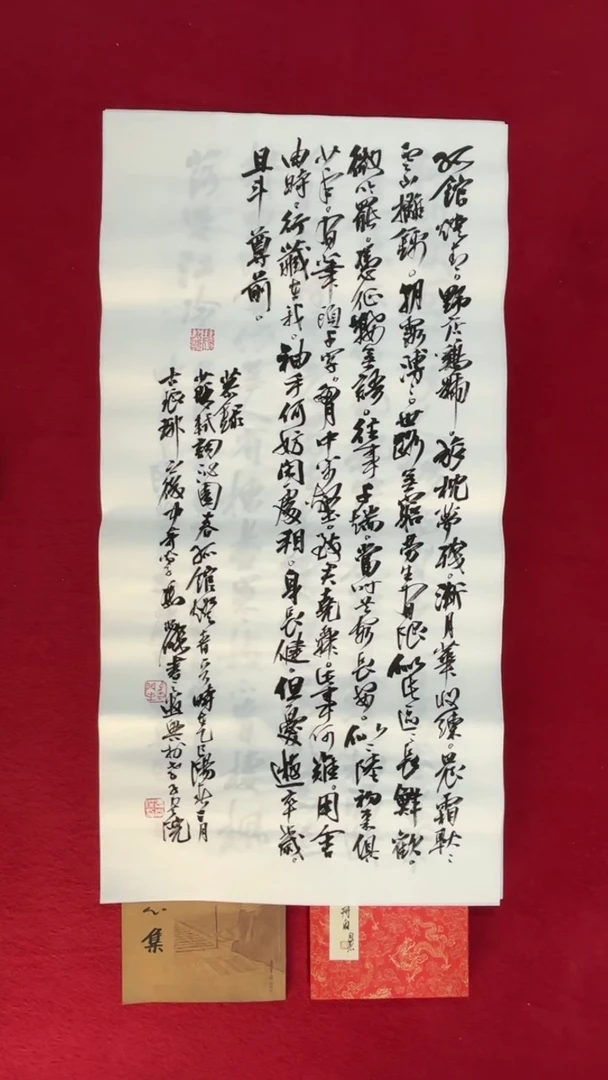 孤館燈青。野店雞號。旅枕夢殘。漸月華收練。晨霜耿耿
雲山摛錦。朝露漙漙。世路無窮勞生有限似此區區長鮮歡。
微吟罷。憑征鞍無語。往事千端。當時共客長安。似二陸初來俱
少年。有筆頭千字。胸中萬卷。致君堯舜。此事何難。用舍
由時。行藏在我。袖手何妨閑處。身長健。但憂遊卒歲。
且斗尊前。
恭錄
蘇軾詞沁園春孤館燈青 時乙巳陽春二月
古琅琊 書 院
心集